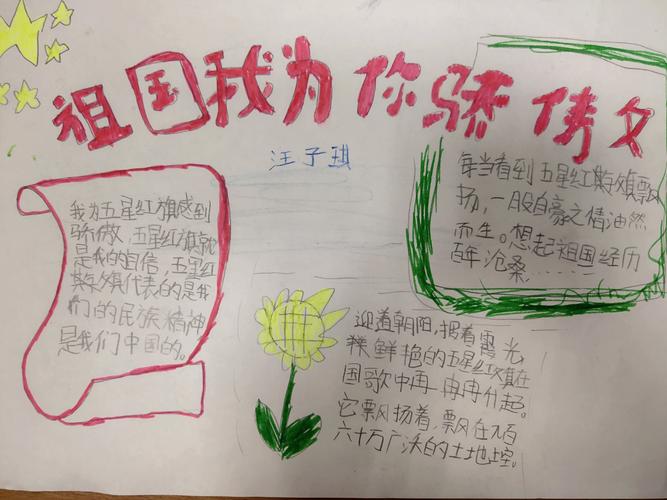 祖国我为你骄傲文
汪子琪
我为五星红旗感到
骄傲,五星红旗就
是我的自信,五星红
旗代表的是我
们的民族精神
是我们中国的。
每当看到五星红旗飘
扬,一股自豪之情油然
而生。想起祖国经历
百年沧桑……
迎着朝阳,披着霞光,
鲜艳的五星红旗在
国歌中再一冉冉升起。
它飘扬着,飘在九百
六十万广沃的土地上空。